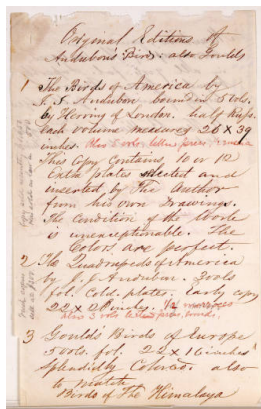 Original Editions of
Audubon's Birds: also Goulds
1 The Birds of America by
J. J. Audubon bound in 5 vols.
by Hering of London. half
each volume measures 26 X 39
inches. also 5 vols. letter press
This copy contains 10 or 12
Extra plates selected and
inserted, by The Author
from his own Drawings.
The Condition of the Work
is unexceptionable. The
Colors are perfect.
2 The Quadrupeds of America
by J. J. Audubon. 3 vols
fol. Cold. plates. Early copy
22 X 28 inches. 1/2 morocco
also 3 vols letter press bound.
3 Gould's Birds of Europe
5 vols. fol. inches
Splendidly Colored. also
to match
Birds of The Himalaya